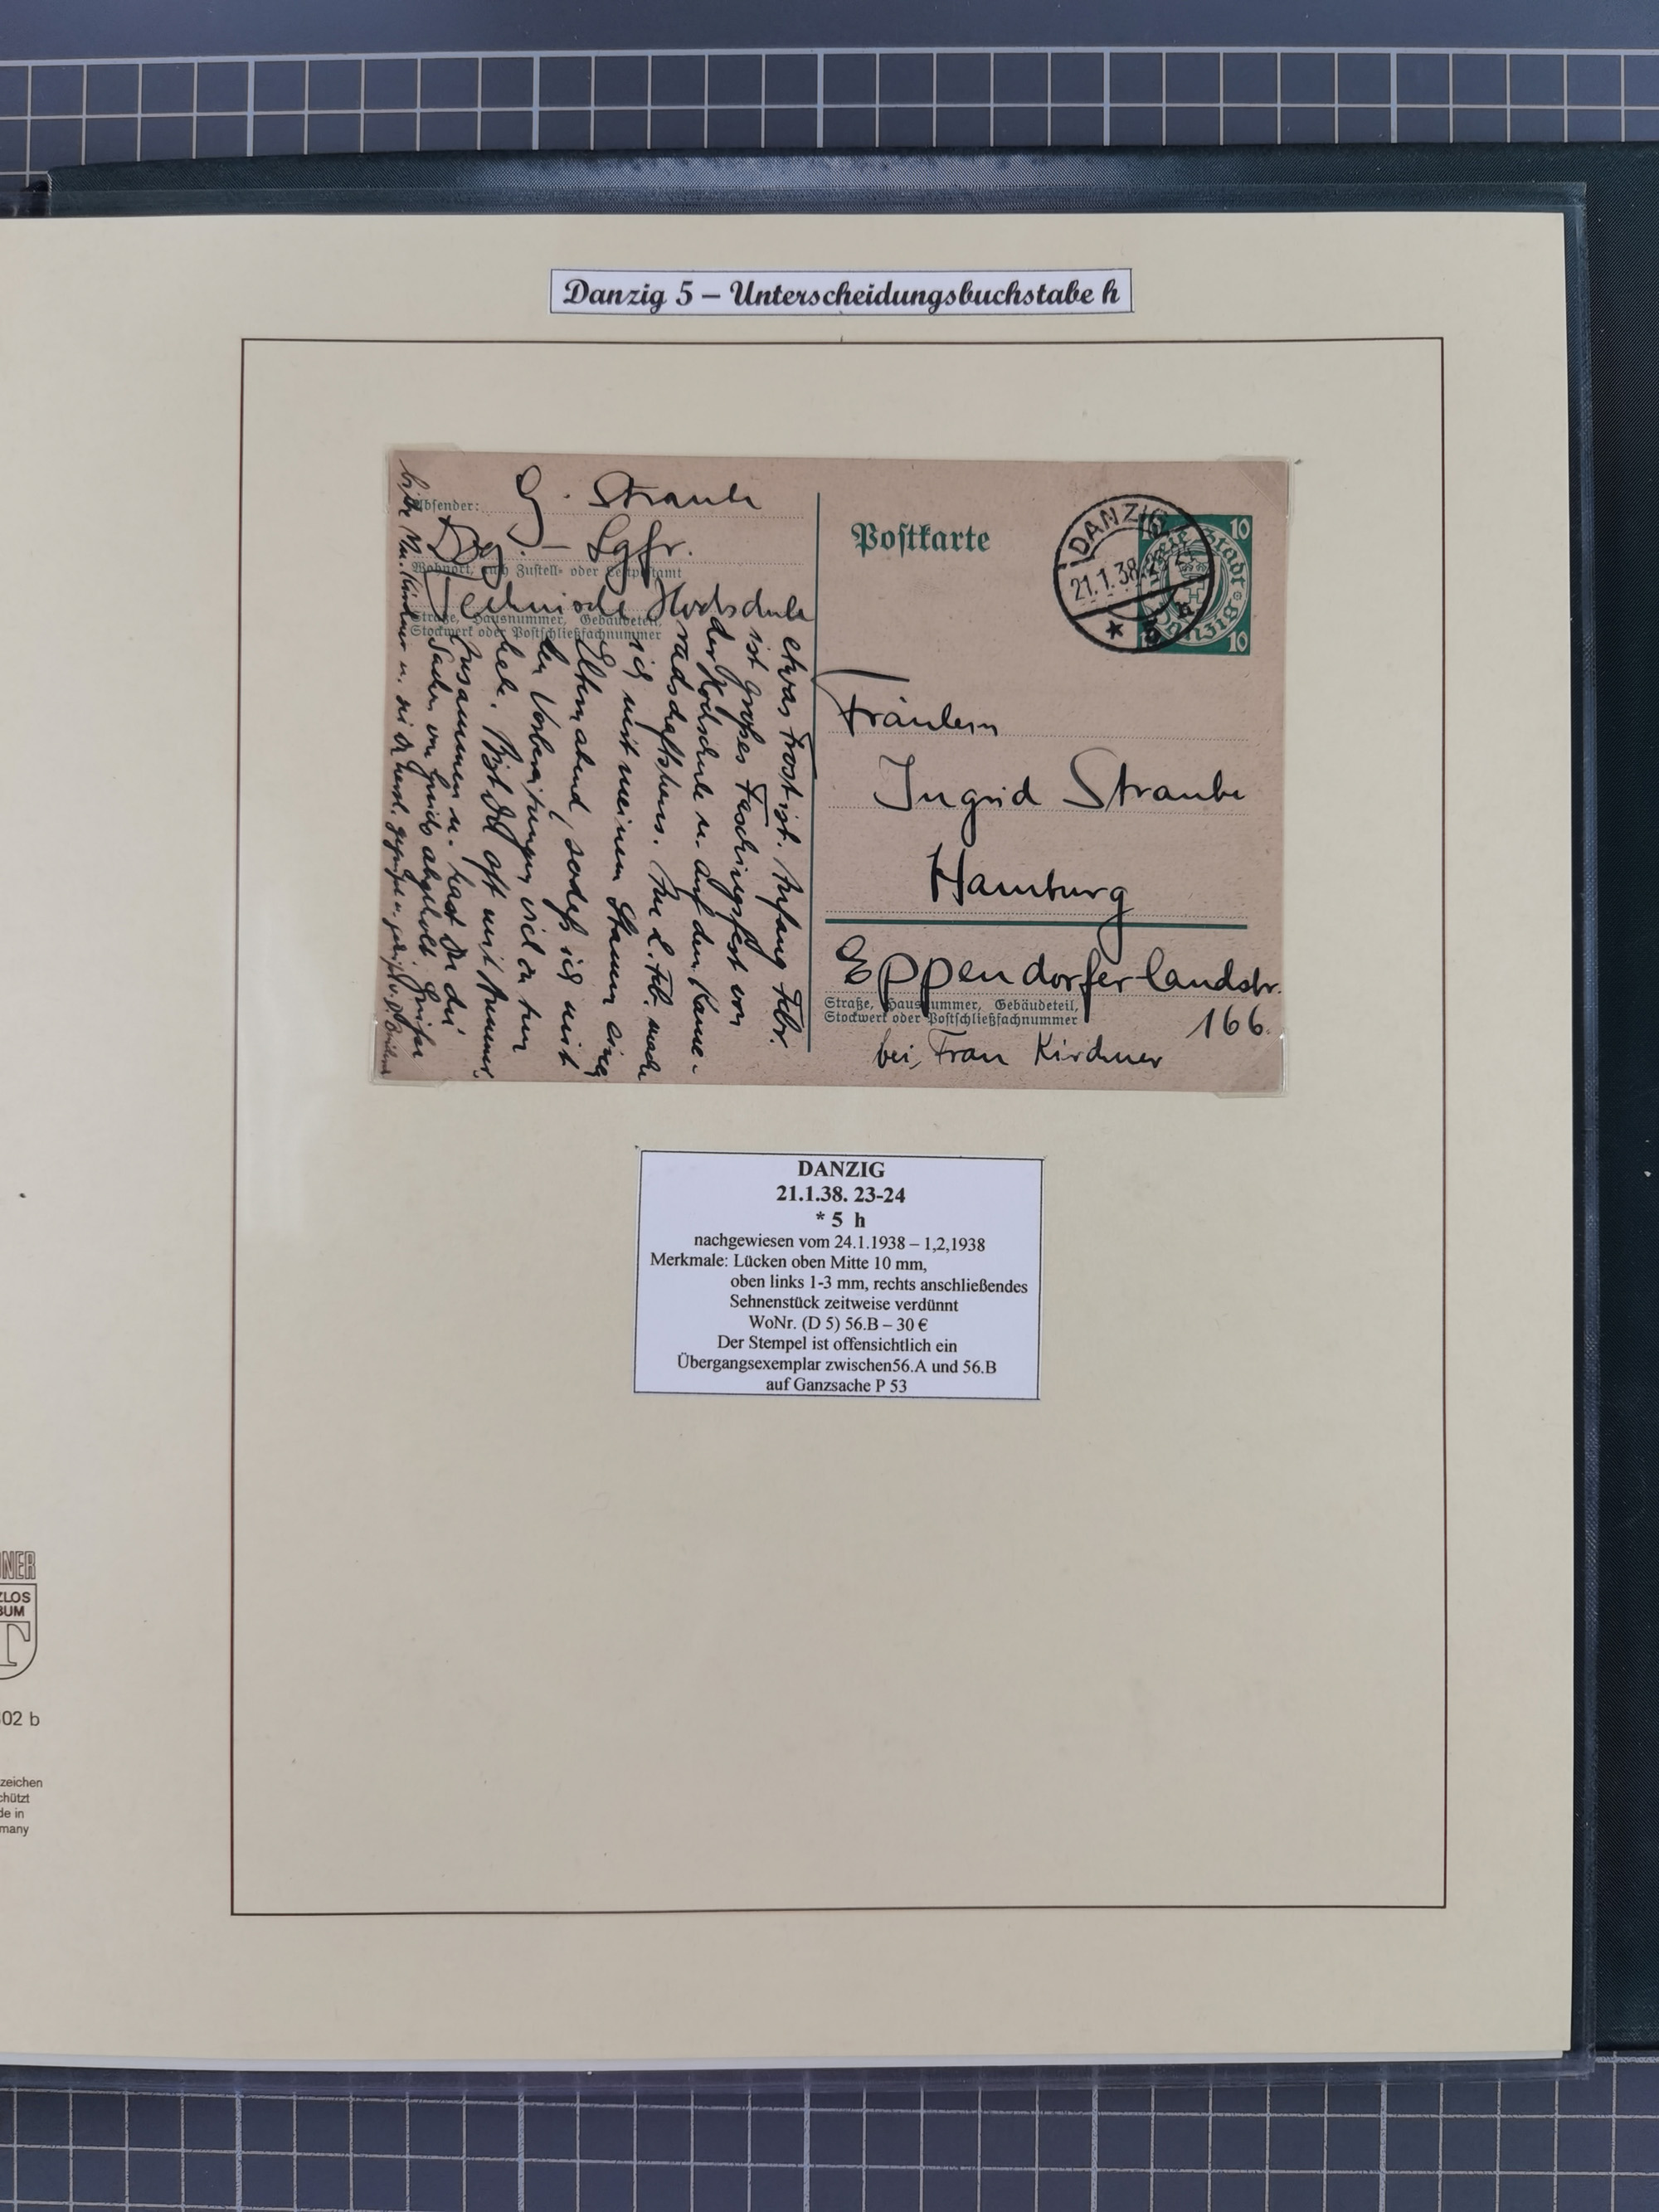 Danzig 5 – Unterscheidungsbuchstabe h
Absender: G. Straube
Dzg. – Lgfr.
Wohnort, auch Zustell- oder Leitpostamt
Technische Hochschule
Straße, Hausnummer, Gebäudeteil,
Stockwerk oder Postschließfachnummer
etwas Frost ist. Anfang Febr.
ist großes Faschingsfest von
der Hochschule u. auf den Kame-
radschaftshaus. Am 2. Feb. mache
ich mit meinem Stamm eine
Elternabend, sodaß ich mit
den Vorbereitungen viel zu tun
habe. Bist Du oft mit
zusammen u. hast Du die
Sachen von abgeholt
Postkarte
DANZIG
21.1.38.23-24
* 5 h
Freie Stadt Danzig
10
10
10
Fräulein
Ingrid Straube
Hamburg
Eppendorferlandstr.
Straße, Hausnummer, Gebäudeteil,
Stockwerk oder Postschließfachnummer
166.
bei Frau Kirchner
DANZIG
21.1.38. 23-24
* 5 h
nachgewiesen vom 24.1.1938 – 1,2,1938
Merkmale: Lücken oben Mitte 10 mm,
oben links 1-3 mm, rechts anschließendes
Sehnenstück zeitweise verdünnt
WoNr. (D 5) 56.B – 30 €
Der Stempel ist offensichtlich ein
Übergangsexemplar zwischen56.A und 56.B
auf Ganzsache P 53
NER
ZLOS
BUM
T
02 b
zeichen
chützt
de in
many